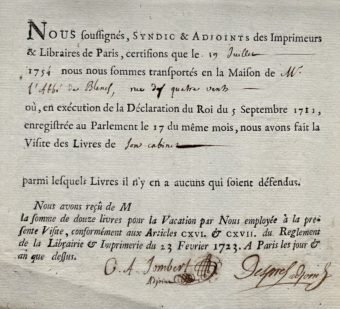 NOUS souſſignés, SYNDIC & ADJOINTS des Imprimeurs
& Libraires de Paris, certifions que le 19 Juillet
1754 nous nous ſommes transportés en la Maiſon de Mr
l'Abbé de Blenes, rue des quatre vents
où, en exécution de la Déclaration du Roi du 5 Septembre 1711,
enregiſtrée au Parlement le 17 du même mois, nous avons fait la
Viſite des Livres de ſon cabinet
parmi leſquels Livres il n'y en a aucuns qui ſoient défendus.
Nous avons reçu de M
la ſomme de douze livres pour la Vacation par Nous employée à la pré-
ſente Viſite, conformément aux Articles CXVI. & CXVII. du Reglement
de la Librairie & Imprimerie du 23 Février 1723. A Paris les jour &
an que deſſus.
C. A. Jombert
Adjoint
Despres adjoint